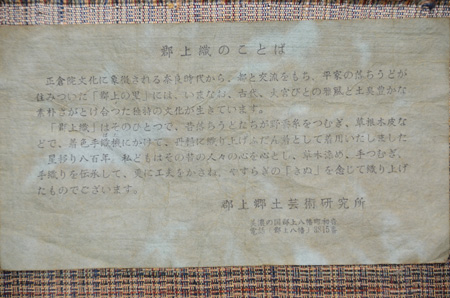 郡上織のことば
正倉院文化に象徴される奈良時代から、都と交流をもち、平家の落ちうどが
住みついた「郡上の里」には、いまなお、古代、大宮びとの雅風と土臭豊かな
素朴さがとけ合つた独特の文化が生きています。
「郡上織」はそのひとつで、昔落ちうどたちが野蚕糸をつむぎ、草根木皮な
どで、着色手織機にかけて、丹精に織り上げふだん着として着用いたしました
星移り八百年、私どもはその昔の人々の心を心とし、草木染め、手つむぎ、
手織りを伝承して、更に工夫をかさね、やすらぎの「きぬ」を念じて織り上げ
たものでございます。
郡上郷土芸術研究所
美濃の国郡上八幡町
電話「郡上八幡」